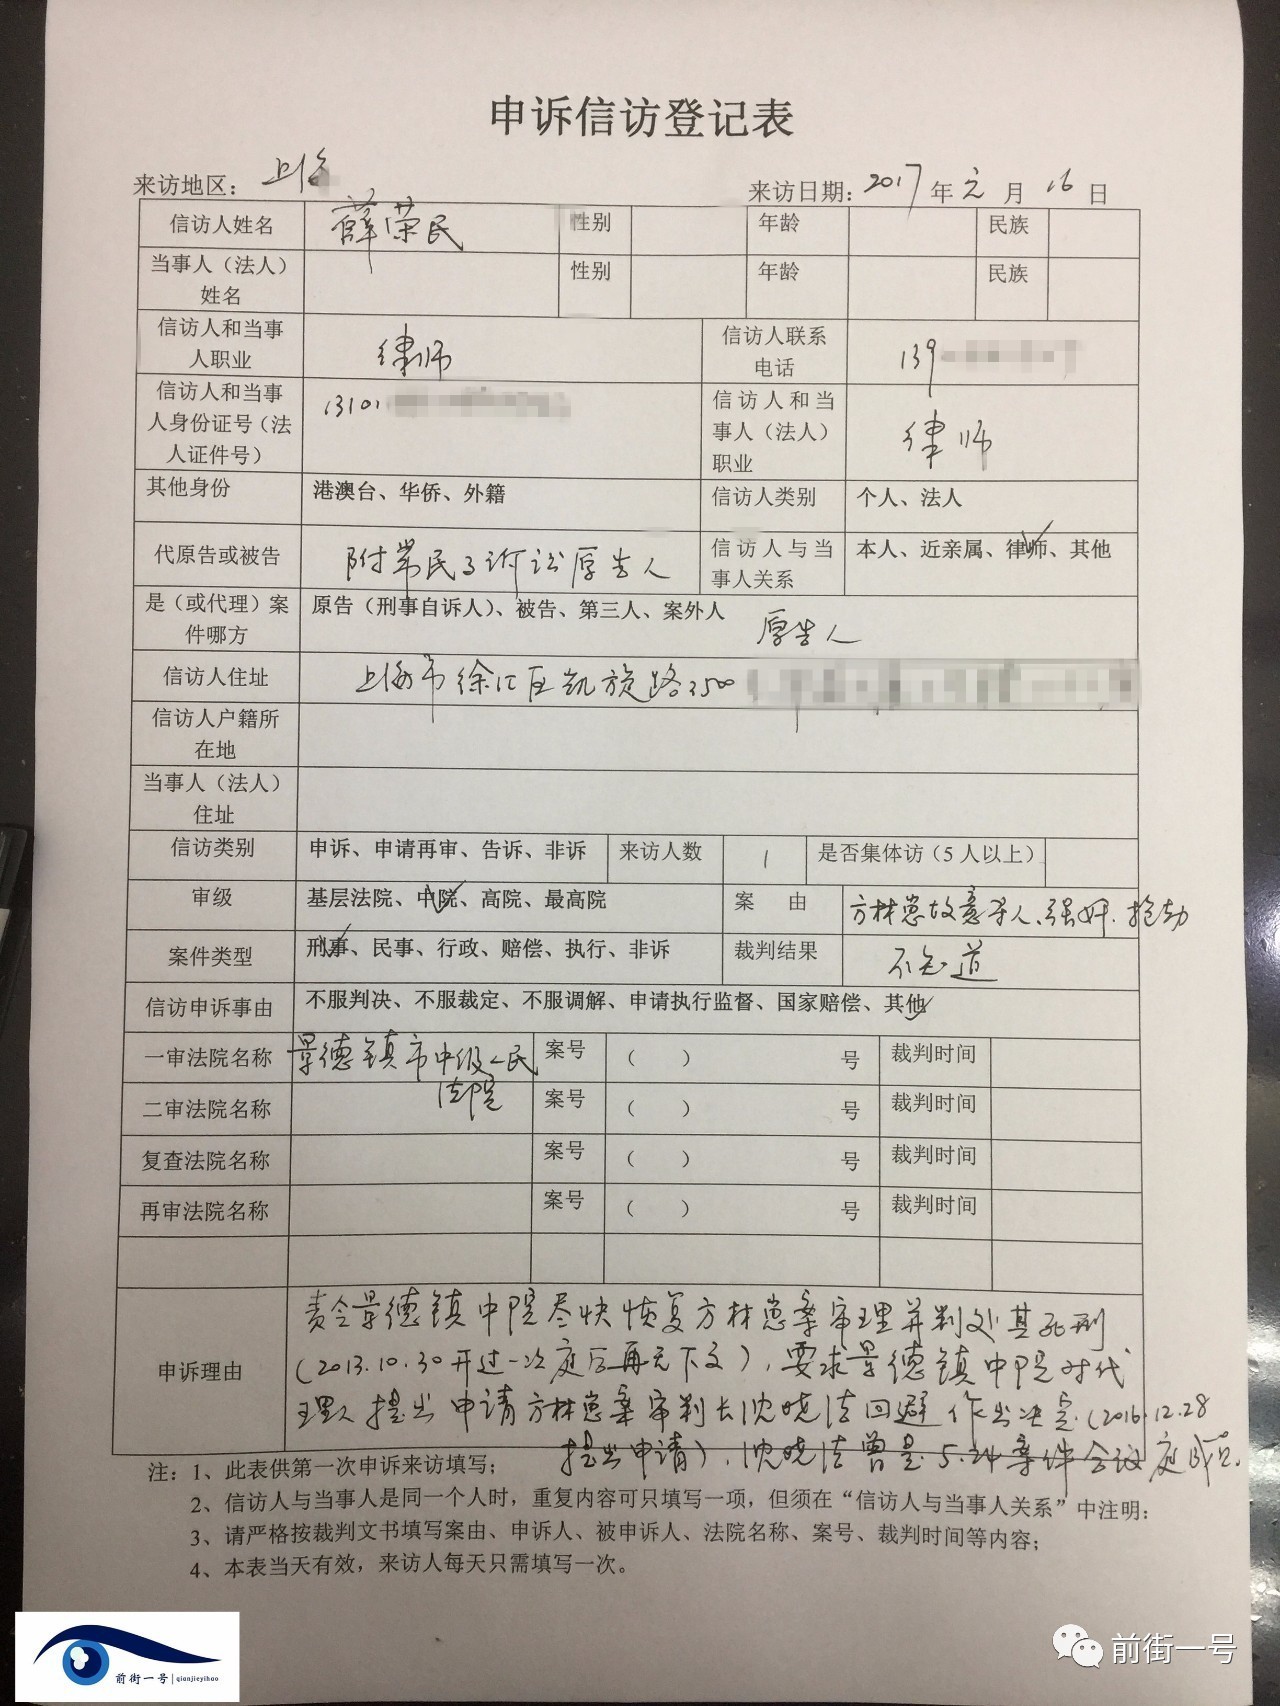 申诉信访登记表
来访地区：上海 来访日期：2017年元月16日
信访人姓名 薛荣民 性别 年龄 民族
当事人（法人）姓名 性别 年龄 民族
信访人和当事人职业 律师 信访人联系电话 139
信访人和当事人身份证号（法人证件号） 13101 信访人和当事人（法人）职业 律师
其他身份 港澳台、华侨、外籍 信访人类别 个人、法人
代原告或被告 附带民事诉讼原告人 信访人与当事人关系 本人、近亲属、律师、其他
是（或代理）案件哪方 原告（刑事自诉人）、被告、第三人、案外人 原告人
信访人住址 上海市徐汇区凯旋路3500
信访人户籍所在地
当事人（法人）住址
信访类别 申诉、申请再审、告诉、非诉 来访人数 1 是否集体访（5人以上）
审级 基层法院、中院、高院、最高院 案由 方林崽故意杀人、强奸、抢劫
案件类型 刑事、民事、行政、赔偿、执行、非诉 裁判结果 不知道
信访申诉事由 不服判决、不服裁定、不服调解、申请执行监督、国家赔偿、其他
一审法院名称 景德镇市中级人民法院 案号 （ ） 号 裁判时间
二审法院名称 案号 （ ） 号 裁判时间
复查法院名称 案号 （ ） 号 裁判时间
再审法院名称 案号 （ ） 号 裁判时间
申诉理由 责令景德镇中院尽快恢复方林崽案审理并判处其死刑
（2013.10.30开过一次庭后再无下文），要求景德镇中院对代
理人提出申请方林崽案审判长沈晓浩回避作出决定（2016.12.28
提出申请），沈晓浩曾是5.24案件合议庭成员。
注：1、此表供第一次申诉来访填写；
2、信访人与当事人是同一个人时，重复内容可只填写一项，但须在“信访人与当事人关系”中注明：
3、请严格按裁判文书填写案由、申诉人、被申诉人、法院名称、案号、裁判时间等内容；
4、本表当天有效，来访人每天只需填写一次。
前街一号 | qianjieyihao
前街一号